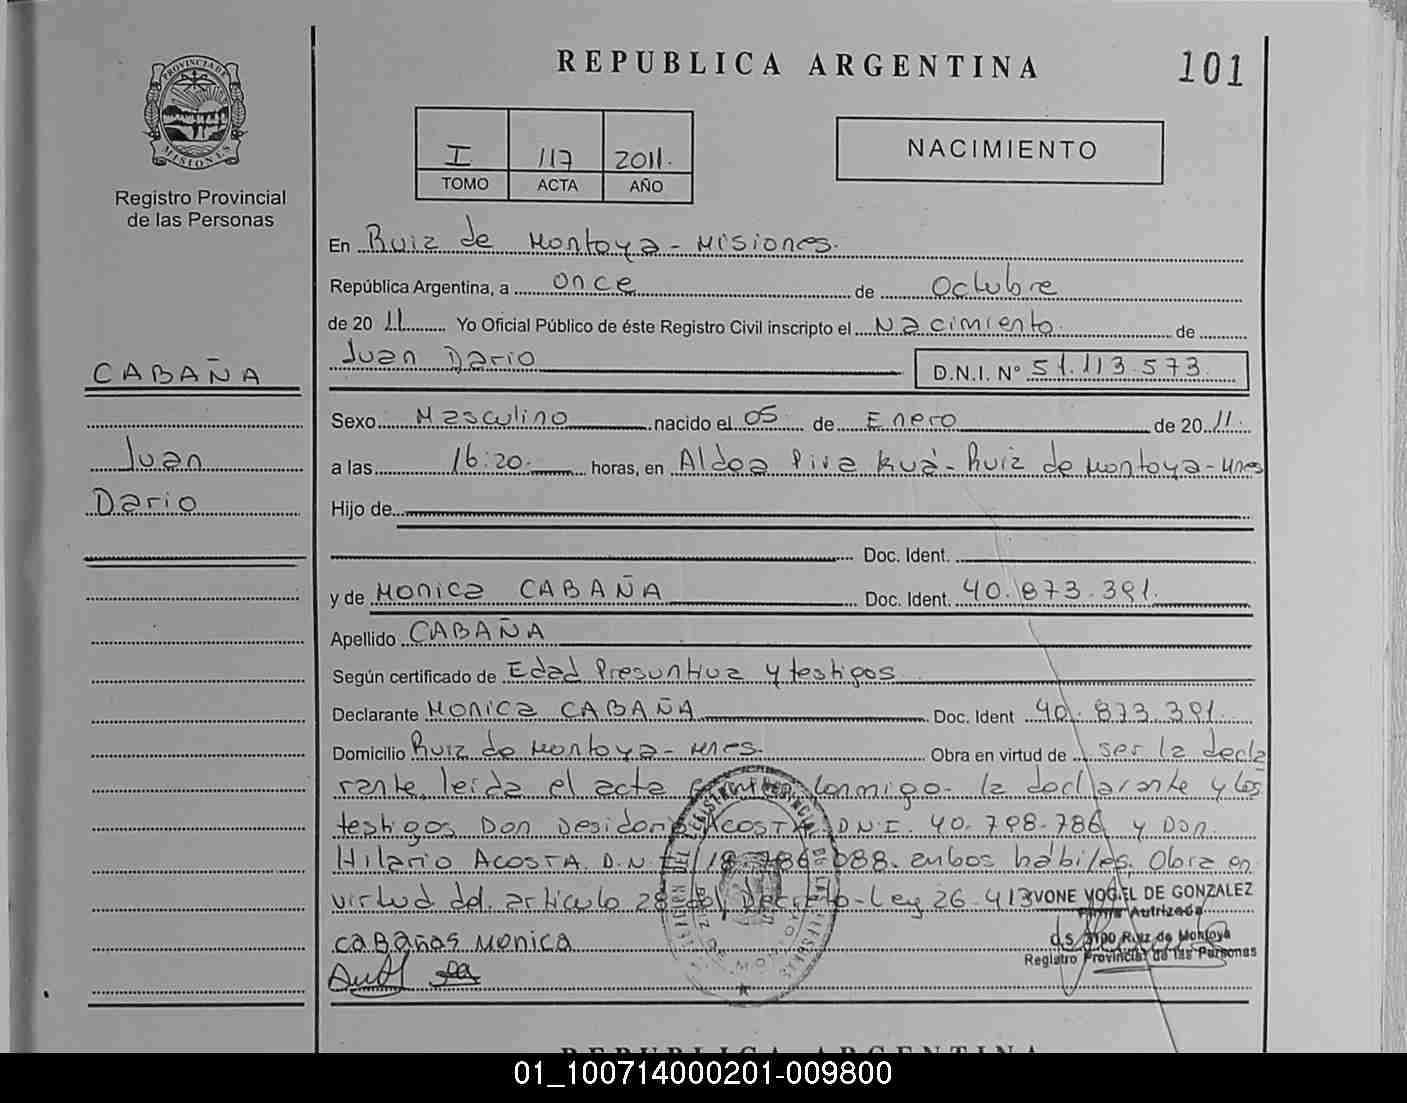 REPUBLICA ARGENTINA
101
PROVINCIA DE
MISIONES
Registro Provincial
de las Personas
I 117 2011.
TOMO ACTA AÑO
NACIMIENTO
En Ruiz de Montoya - Misiones.
República Argentina, a once de Octubre
de 2011 Yo Oficial Público de éste Registro Civil inscripto el Nacimiento de
Juan Dario D.N.I. N° 51.113.573
CABAÑA
Juan
Dario
Sexo Masculino nacido el 05 de Enero de 2011
a las 16:20 horas, en Aldea Ruiz de Montoya - Mnes
Hijo de
Doc. Ident.
y de Monica CABAÑA Doc. Ident. 40.873.391.
Apellido CABAÑA
Según certificado de Edad Presuntiva y testigos
Declarante MONICA CABAÑA Doc. Ident 40.873.391.
Domicilio Ruiz de Montoya - Mnes. Obra en virtud de ser la decla
rante, leida el acta conmigo la declarante y los
testigos Don Desiderio ACOSTA D.N.I. 40.798.786 y Don
Hilario ACOSTA. D.N.I. 18.786.088. anbos hábiles. Obra en
virtud del articulo 28 del Decreto-Ley 26.413
IVONE VOGEL DE GONZALEZ
Firma Autrizada
D.S. 3100 Ruiz de Montoya
Registro Provincial de las Personas
CABAÑAS MONICA
REPUBLICA ARGENTINA
01_100714000201-009800